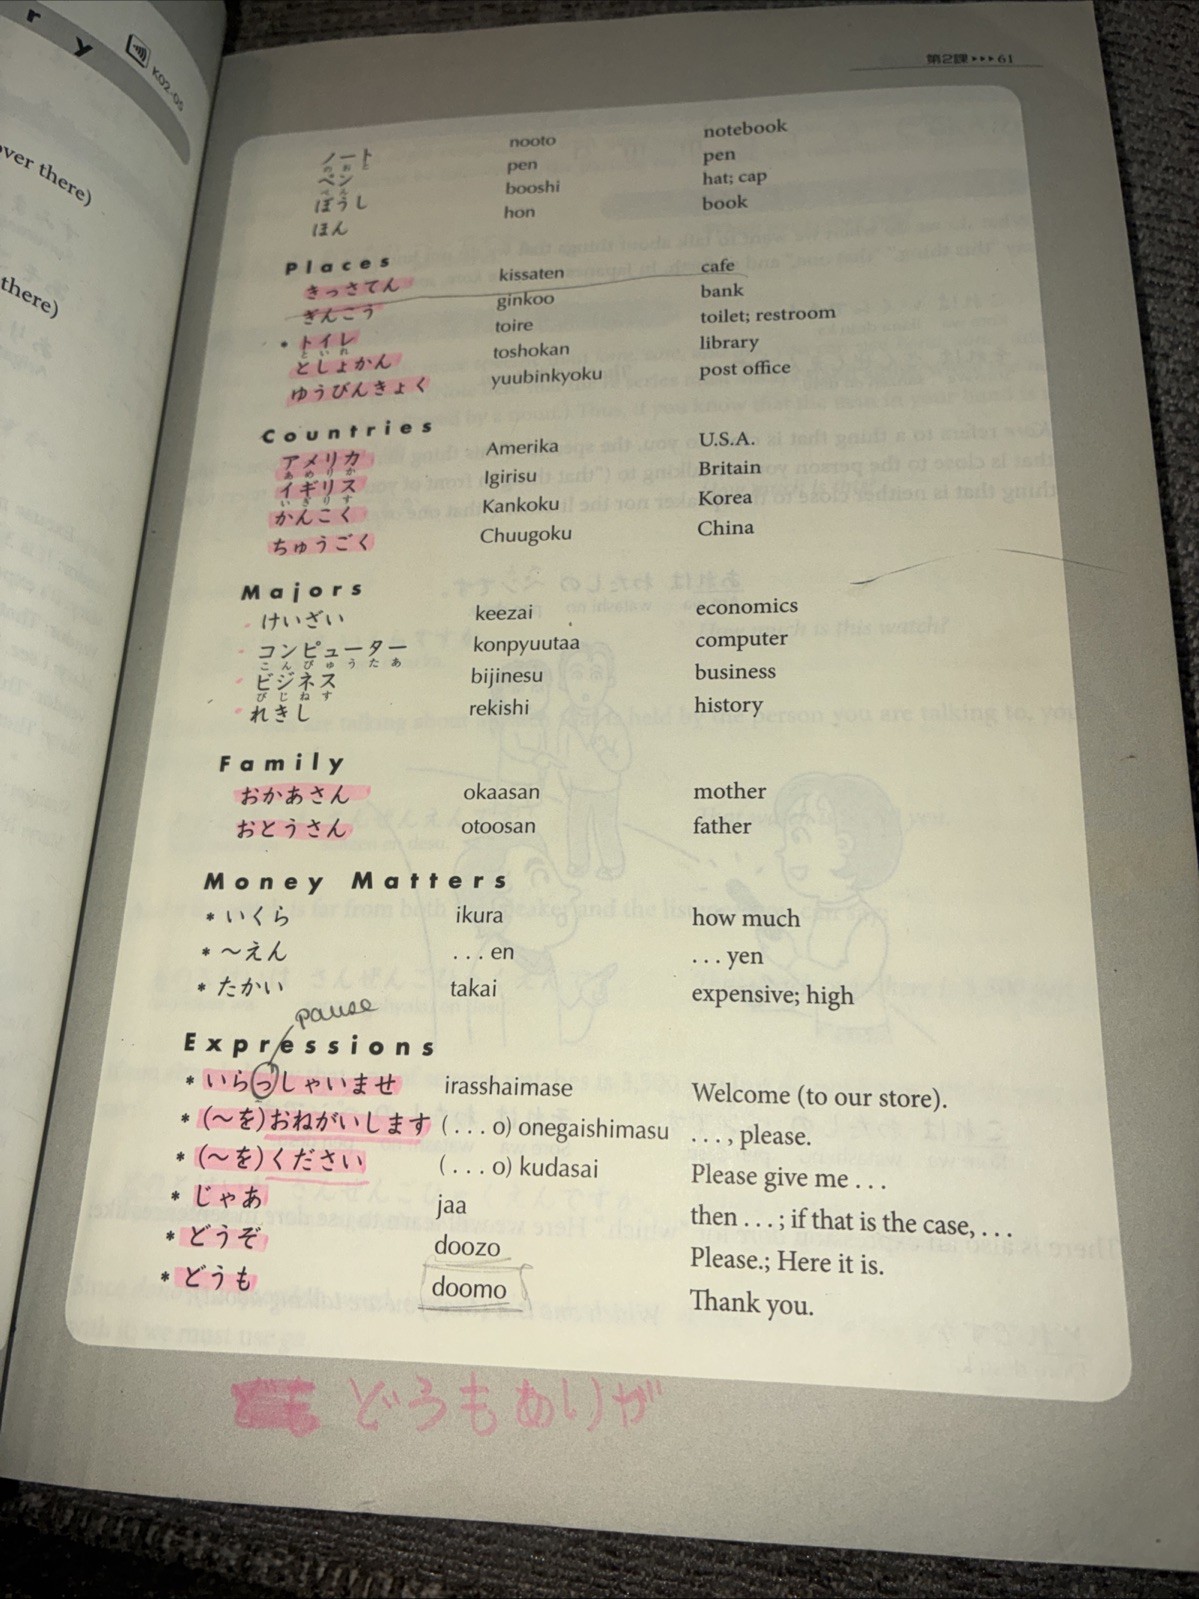 r
y
K02-05
over there)
there)
第2課 ▸▸▸ 61
ノート nooto notebook
のおと
ペン pen pen
ぺん
ぼうし booshi hat; cap
ほん hon book
Places
きっさてん kissaten cafe
ぎんこう ginkoo bank
* トイレ toire toilet; restroom
といれ
としょかん toshokan library
ゆうびんきょく yuubinkyoku post office
Countries
アメリカ Amerika U.S.A.
あめりか
イギリス Igirisu Britain
いぎりす
かんこく Kankoku Korea
ちゅうごく Chuugoku China
Majors
けいざい keezai economics
コンピューター konpyuutaa computer
こんぴゅうたあ
ビジネス bijinesu business
びじねす
れきし rekishi history
Family
おかあさん okaasan mother
おとうさん otoosan father
Money Matters
* いくら ikura how much
* ～えん ...en ...yen
* たかい takai expensive; high
pause
Expressions
* いらっしゃいませ irasshaimase Welcome (to our store).
* (～を)おねがいします (...o) onegaishimasu ..., please.
* (～を)ください (...o) kudasai Please give me...
* じゃあ jaa then...; if that is the case,...
* どうぞ doozo Please.; Here it is.
* どうも doomo Thank you.
どうもありが